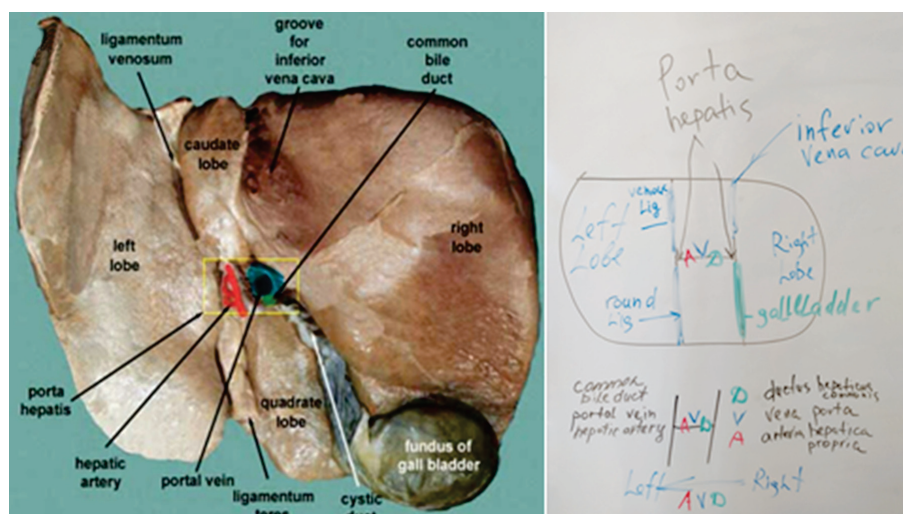 ligamentum
venosum
groove
for
inferior
vena cava
common
bile
duct
caudate
lobe
left
lobe
right
lobe
porta
hepatis
hepatic
artery
portal vein
quadrate
lobe
ligamentum
cystic
fundus of
gall bladder
Porta
hepatis
inferior
vena cav
venose
Lig
Left
Lobe
A V D
Right
Lobe
round
Lig
gallbladder
common
bile duct
portal vein
hepatic artery
A V D
D ductus hepaticus
communis
V vena porta
A arteria hepatica
propria
Left Right
A V D